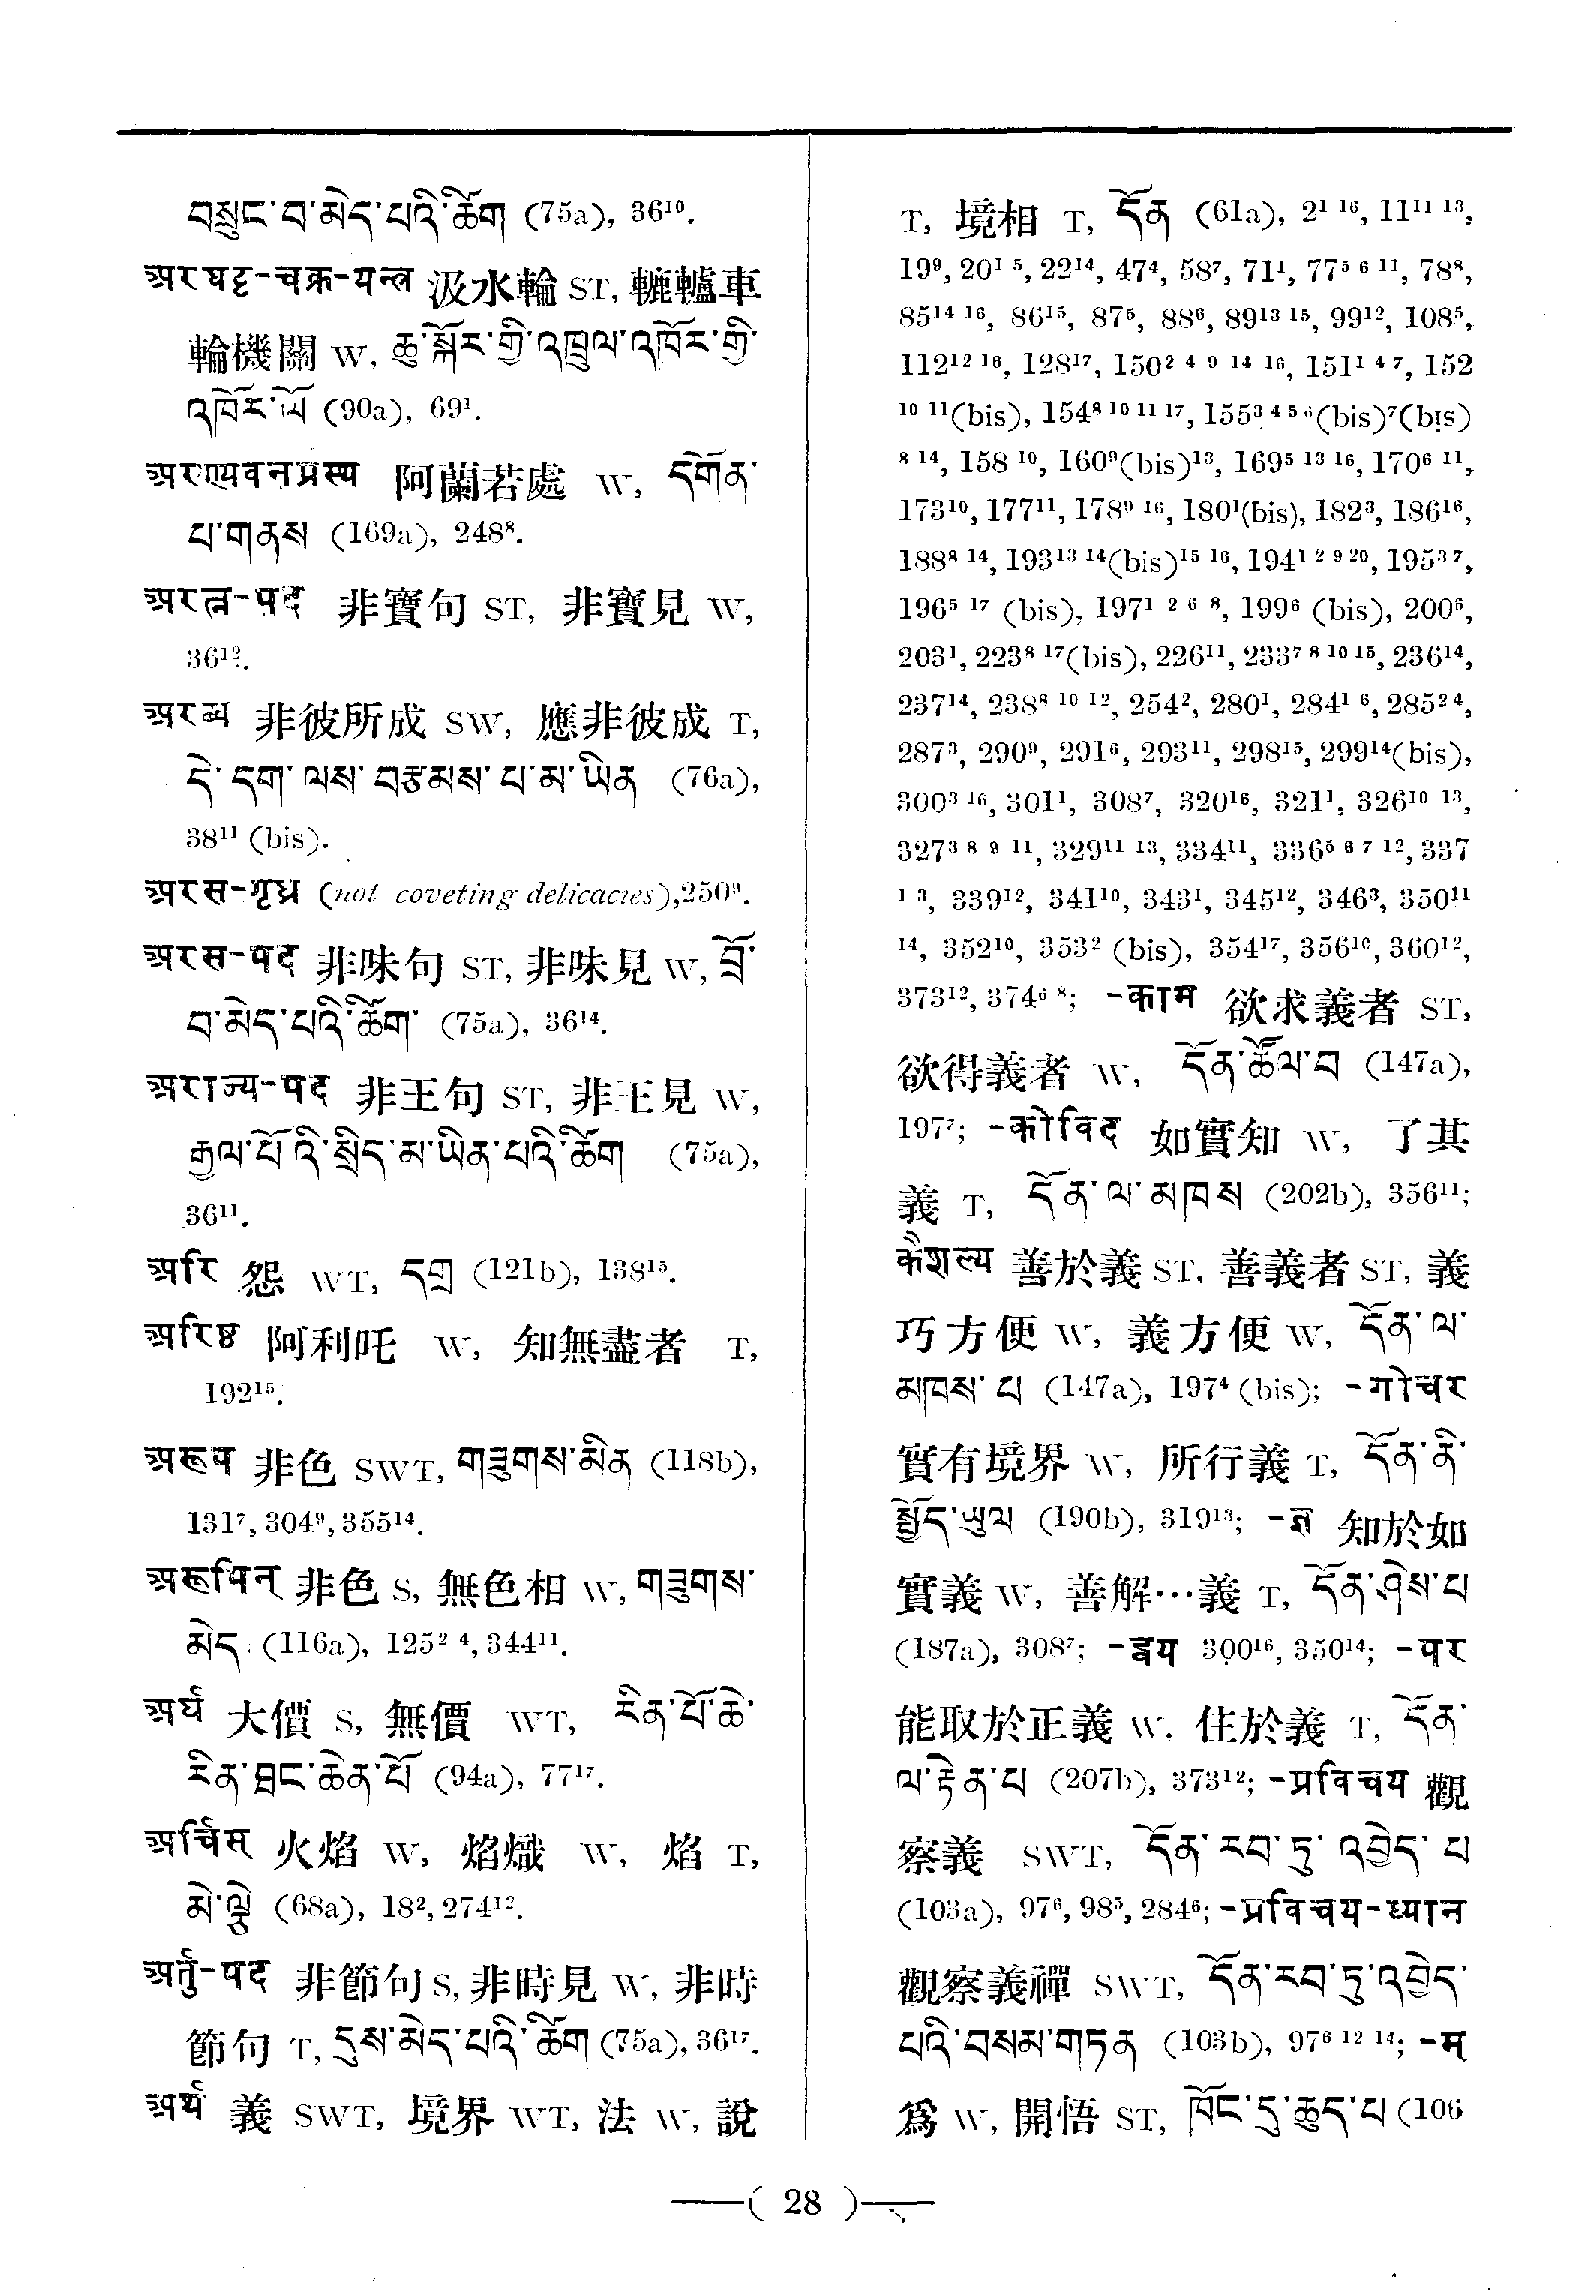 བསྲུང་བ་མེད་པའི་ཚིག (75a), 36¹⁰.
अरघट्ट-चक्र-यन्त्र 汲水輪 ST, 轆轤車
輪機關 W, ཆུ་སྐོར་གྱི་འཁྲུལ་འཁོར་གྱི་
འཁོར་ལོ (90a), 69¹.
अरण्यवनप्रस्थ 阿蘭若處 W, དགོན་
པ་གནས (169a), 248⁸.
अरत्न-पद 非寶句 ST, 非寶見 W,
36¹².
अरब्ध 非彼所成 SW, 應非彼成 T,
དེ་དག་ལས་བརྩམས་པ་མ་ཡིན (76a),
38¹¹ (bis).
अरस-गृध्र (not coveting delicacies), 250⁹.
अरस-पद 非味句 ST, 非味見 W, བྲོ་
བ་མེད་པའི་ཚིག་ (75a), 36¹⁴.
अराज्य-पद 非王句 ST, 非王見 W,
རྒྱལ་པོའི་སྲིད་མ་ཡིན་པའི་ཚིག (75a),
36¹¹.
अरि 怨 WT, དགྲ (121b), 138¹⁵.
अरिष्ठ 阿利吒 W, 知無盡者 T,
192¹⁵.
अरूप 非色 SWT, གཟུགས་མིན (118b),
131⁷, 304⁹, 355¹⁴.
अरूपिन् 非色 S, 無色相 W, གཟུགས་
མེད (116a), 125² ⁴, 344¹¹.
अर्घ 大價 S, 無價 WT, རིན་པོ་ཆེ་
རིན་ཐང་ཆེན་པོ (94a), 77¹⁷.
अर्चिस् 火焰 W, 焰熾 W, 焰 T,
མེ་ལྕེ (68a), 18², 274¹².
अर्तु-पद 非節句 S, 非時見 W, 非時
節句 T, དུས་མེད་པའི་ཚིག (75a), 36¹⁷.
अर्थ 義 SWT, 境界 WT, 法 W, 說
T, 境相 T, དོན (61a), 2¹ ¹⁶, 11¹¹ ¹³,
19⁹, 20¹ ⁵, 22¹⁴, 47⁴, 58⁷, 71¹, 77⁵ ⁶ ¹¹, 78⁸,
85¹⁴ ¹⁶, 86¹⁵, 87⁵, 88⁶, 89¹³ ¹⁵, 99¹², 108⁵,
112¹² ¹⁶, 128¹⁷, 150² ⁴ ⁹ ¹⁴ ¹⁶, 151¹ ⁴ ⁷, 152
¹⁰ ¹¹(bis), 154⁸ ¹⁰ ¹¹ ¹⁷, 155³ ⁴ ⁵ ⁶(bis)⁷(bis)
⁸ ¹⁴, 158 ¹⁰, 160⁹(bis)¹³, 169⁵ ¹³ ¹⁶, 170⁶ ¹¹,
173¹⁰, 177¹¹, 178⁹ ¹⁶, 180¹(bis), 182³, 186¹⁶,
188⁸ ¹⁴, 193¹³ ¹⁴(bis)¹⁵ ¹⁶, 194¹ ² ⁹ ²⁰, 195³ ⁷,
196⁵ ¹⁷ (bis), 197¹ ² ⁶ ⁸, 199⁶ (bis), 200⁶,
203¹, 223⁸ ¹⁷(bis), 226¹¹, 233⁷ ⁸ ¹⁰ ¹⁵, 236¹⁴,
237¹⁴, 238⁸ ¹⁰ ¹², 254², 280¹, 284¹ ⁶, 285² ⁴,
287³, 290⁹, 291⁶, 293¹¹, 298¹⁵, 299¹⁴(bis),
300³ ¹⁶, 301¹, 308⁷, 320¹⁶, 321¹, 326¹⁰ ¹³,
327³ ⁸ ⁹ ¹¹, 329¹¹ ¹³, 334¹¹, 336⁵ ⁶ ⁷ ¹², 337
¹ ³, 339¹², 341¹⁰, 343¹, 345¹², 346³, 350¹¹
¹⁴, 352¹⁰, 353² (bis), 354¹⁷, 356¹⁰, 360¹²,
373¹², 374⁶ ⁸; -काम 欲求義者 ST,
欲得義者 W, དོན་ཚོལ་བ (147a),
197⁷; -कोविद 如實知 W, 了其
義 T, དོན་ལ་མཁས (202b), 356¹¹;
कौशल्य 善於義 ST, 善義者 ST, 義
巧方便 W, 義方便 W, དོན་ལ་
མཁས་པ (147a), 197⁴ (bis); -गोचर
實有境界 W, 所行義 T, དོན་ནི་
སྤྱོད་ཡུལ (190b), 319¹³; -ज्ञ 知於如
實義 W, 善解…義 T, དོན་ཤེས་པ
(187a), 308⁷; -द्वय 300¹⁶, 350¹⁴; -पर
能取於正義 W, 住於義 T, དོན་
ལ་རྟེན་པ (207b), 373¹²; -प्रविचय 觀
察義 SWT, དོན་རབ་ཏུ་འབྱེད་པ
(103a), 97⁶, 98⁵, 284⁶; -प्रविचय-ध्यान
觀察義禪 SWT, དོན་རབ་ཏུ་འབྱེད་
པའི་བསམ་གཏན (103b), 97⁶ ¹² ¹⁴; -म
爲 W, 開悟 ST, ཁོང་དུ་ཆུད་པ (106
( 28 )